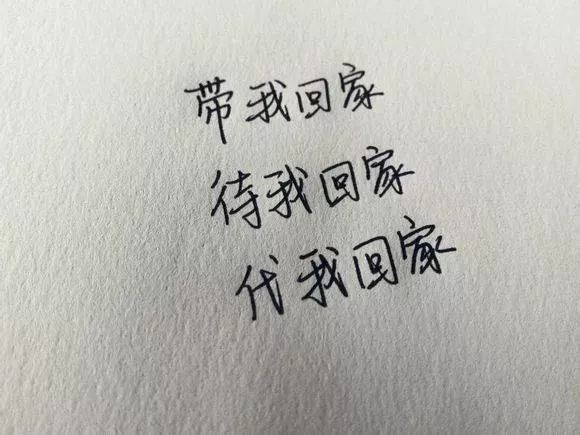 带我回家
待我回家
代我回家